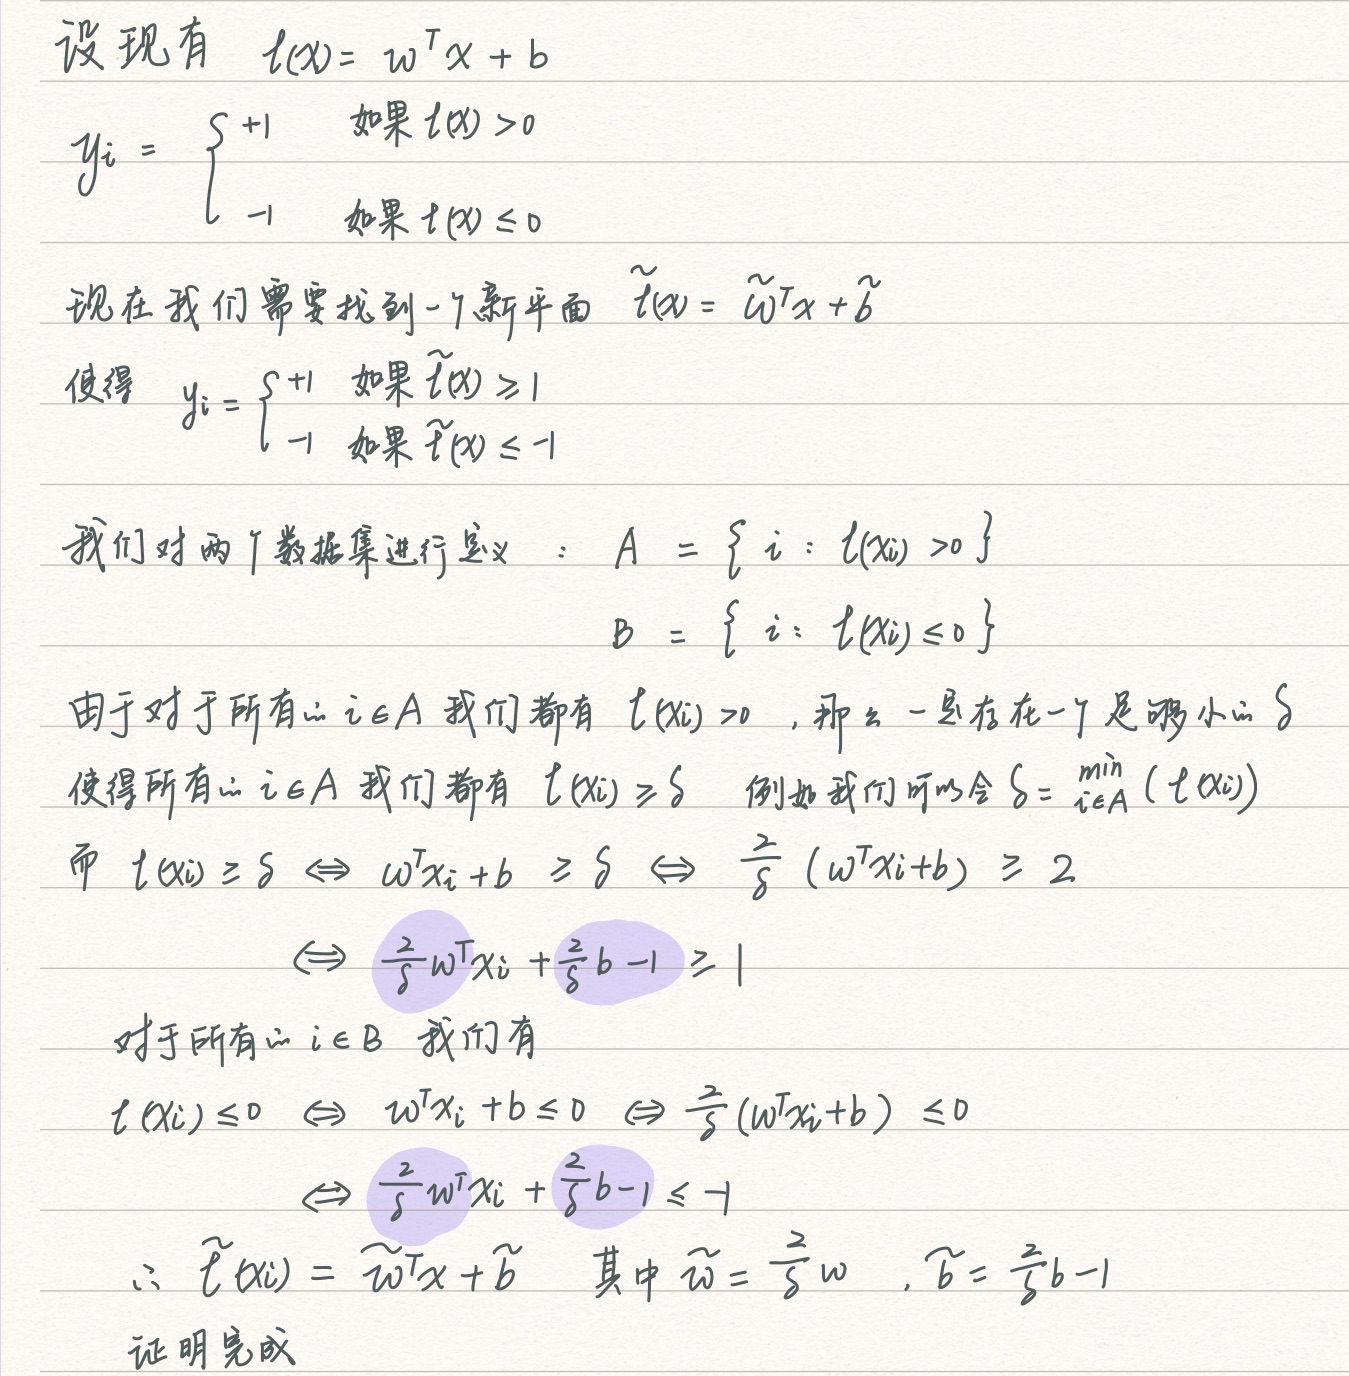 设现有 t(x) = wᵀx + b
yᵢ = { +1 如果 t(x) > 0
-1 如果 t(x) ≤ 0
现在我们需要找到一个新平面 t̃(x) = w̃ᵀx + b̃
使得 yᵢ = { +1 如果 t̃(x) ≥ 1
-1 如果 t̃(x) ≤ -1
我们对两个数据集进行定义 : A = { i : t(xᵢ) > 0 }
B = { i : t(xᵢ) ≤ 0 }
由于对于所有的 i ∈ A 我们都有 t(xᵢ) > 0 , 那么一定存在一个足够小的 δ
使得所有的 i ∈ A 我们都有 t(xᵢ) ≥ δ 例如我们可以令 δ = min_{i∈A} (t(xᵢ))
而 t(xᵢ) ≥ δ ⇔ wᵀxᵢ + b ≥ δ ⇔ 2/δ (wᵀxᵢ + b) ≥ 2
⇔ 2/δ wᵀxᵢ + 2/δ b - 1 ≥ 1
对于所有的 i ∈ B 我们有
t(xᵢ) ≤ 0 ⇔ wᵀxᵢ + b ≤ 0 ⇔ 2/δ (wᵀxᵢ + b) ≤ 0
⇔ 2/δ wᵀxᵢ + 2/δ b - 1 ≤ -1
∴ t̃(xᵢ) = w̃ᵀx + b̃ 其中 w̃ = 2/δ w , b̃ = 2/δ b - 1
证明完成